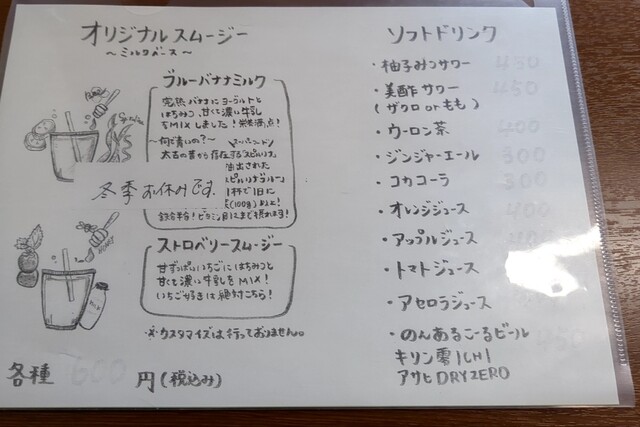 オリジナルスムージー
～ミルクベース～
ブルーバナナミルク
完熟バナナにヨーグルトと
はちみつ、甘くて濃い牛乳
をMIXしました！栄養満点！
～何で青いの？～
太古の昔から存在する
冬季お休みです。
1杯で1日に
鉄分半分！ビタミンB12まで摂れます！
ストロベリースムージー
甘ずっぱいいちごにはちみつと
甘くて濃い牛乳をMIX！
いちご好きは絶対こちら！
※カスタマイズは行っておりません。
各種 600 円(税込み)
ソフトドリンク
・柚子みつサワー 450
・美酢サワー 450
(ザクロorもも)
・ウーロン茶 400
・ジンジャーエール 300
・コカコーラ 300
・オレンジジュース 400
・アップルジュース
・トマトジュース
・アセロラジュース
・のんあるこーるビール 450
キリン零ICHI
アサヒDRYZERO